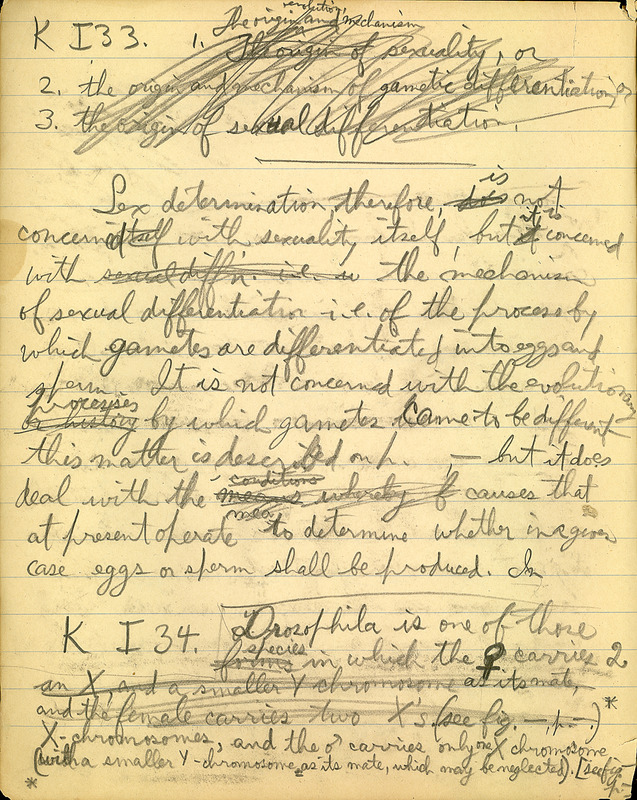 evolution,
The origin and mechanism
K I 33. 1. The origin of sexuality, or
2. the origin and mechanism of gametic differentiation, or
3. the origin of sexual differentiation.
is
Sex determination, therefore, does not
it is
concern itself with sexuality itself, but is concerned
with sexual diff'n. i.e. the mechanism
of sexual differentiation i.e. of the process by
which gametes are differentiated into eggs and
sperm. It is not concerned with the evolutionary
processes
or history by which gametes came to be different
this matter is described on p. , — but it does
conditions
deal with the means whereby causes that
mea
at present operate to determine whether in a given
case eggs or sperm shall be produced. In
K I 34. Drosophila is one of those
species
forms in which the ♀ carries 2
an X, and a smaller Y chromosome as its mate,
and the female carries two X's (see fig. —, p. —) *
X-chromosomes, and the ♂ carries only one X chromosome
(with a smaller Y-chromosome as its mate, which may be neglected). [see fig.
p. —
*